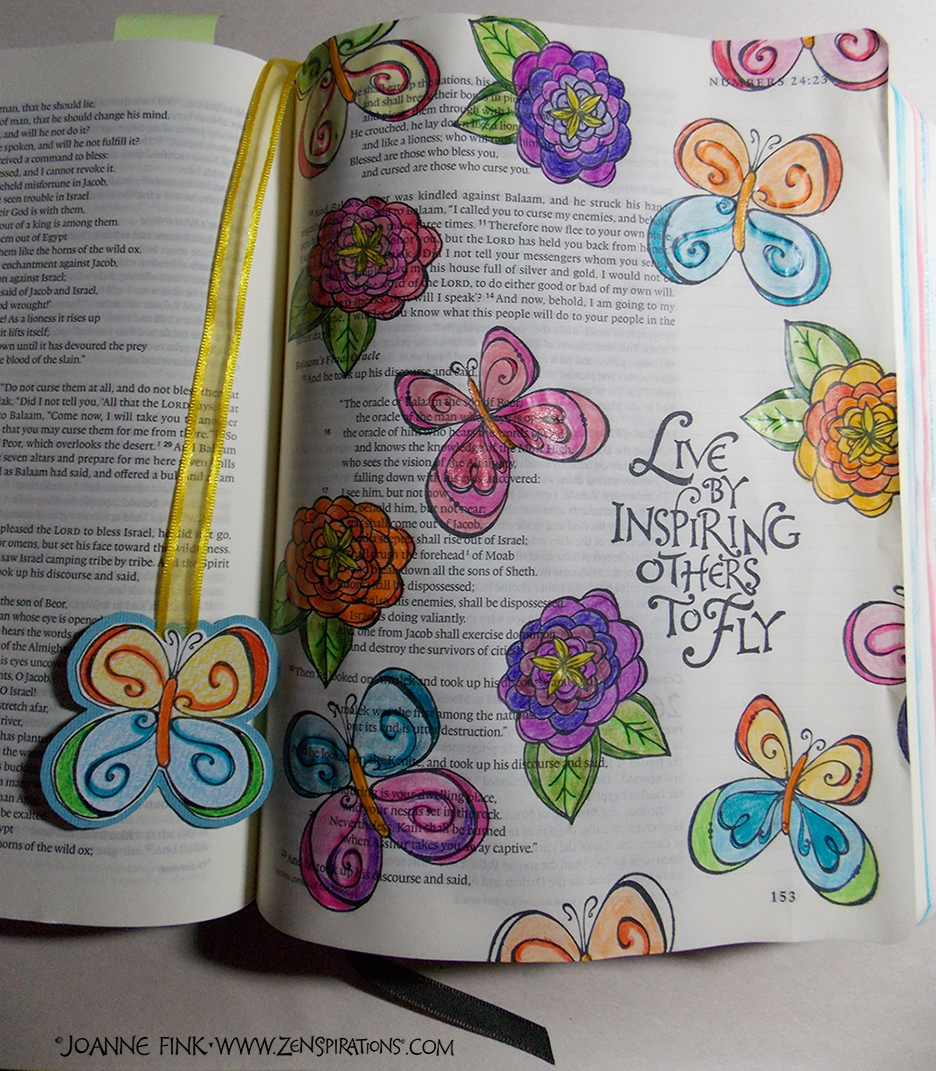 man, that he should lie,
of man, that he should change his mind.
and will he not do it?
spoken, and will he not fulfill it?
received a command to bless:
and I cannot revoke it.
beheld misfortune in Jacob,
seen trouble in Israel.
their God is with them,
out of a king is among them.
out of Egypt
them like the horns of the wild ox.
enchantment against Jacob,
against Israel;
said of Jacob and Israel,
wrought!’
As a lioness it rises up
it lifts itself;
down until it has devoured the prey
blood of the slain.”
“Do not curse them at all, and do not bless them at
“Did I not tell you, ‘All that the LORD says, that
to Balaam, “Come now, I will take you to another
that you may curse them for me from there.” So
Peor, which overlooks the desert. 29 And Balaam
seven altars and prepare for me here seven bulls
as Balaam had said, and offered a bull and a ram
pleased the LORD to bless Israel, he did not go,
for omens, but set his face toward the wilderness.
saw Israel camping tribe by tribe. And the Spirit
took up his discourse and said,
the son of Beor,
man whose eye is opened
hears the words
of the Almighty
his eyes uncovered
tents, O Jacob,
O Israel!
stretch afar,
river,
be exalted
horns of the wild ox;
NUMBERS 24:23
he shall eat up the nations, his
and shall break their bones in pieces
and them through with
He crouched, he lay down like a lion
and like a lioness; who will him
Blessed are those who bless you,
and cursed are those who curse you.
was kindled against Balaam, and he struck his hands
to Balaam, “I called you to curse my enemies, and behold
three times. 11 Therefore now flee to your own place.
you,’ but the LORD has held you back from honor.”
Did I not tell your messengers whom you sent
his house full of silver and gold, I would not be
word of the LORD, to do either good or bad of my own will.
will I speak’? 14 And now, behold, I am going to my
know what this people will do to your people in the
Balaam’s Final Oracle
And he took up his discourse and said,
“The oracle of Balaam the son of Beor,
the oracle of the man whose eye is opened,
16 the oracle of him who hears the words of God,
and knows the knowledge of the Most High,
who sees the vision of the Almighty,
falling down with his eyes uncovered:
17 I see him, but not now;
I behold him, but not near:
shall come out of Jacob,
and a scepter shall rise out of Israel;
shall crush the forehead of Moab
and break down all the sons of Sheth.
shall be dispossessed;
also, his enemies, shall be dispossessed.
Israel is doing valiantly.
And one from Jacob shall exercise dominion
and destroy the survivors of cities
Then he looked on Amalek and took up his discourse and said,
“Amalek was the first among the nations,
but its end is utter destruction.”
And he looked on the Kenite, and took up his discourse and said,
“Enduring is your dwelling place,
and your nest is set in the rock.
Nevertheless, Kain shall be burned
when Asshur takes you away captive.”
And he took up his discourse and said,
LIVE
BY
INSPIRING
OTHERS
TO FLY
153
©JOANNE FINK·WWW.ZENSPIRATIONS®.COM